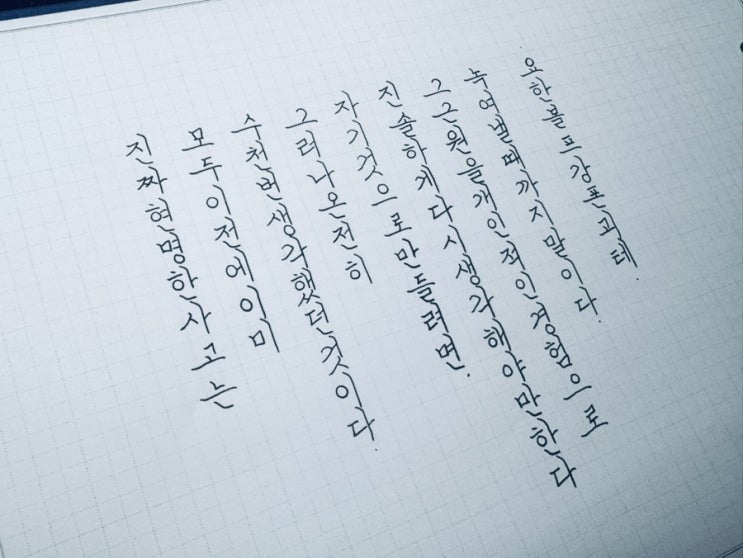 진짜현명한사고는
모두이전에이미
수천번생각했던것이다.
그러나온전히
자기것으로만들려면.
진솔하게다시생각해야만한다
그근원을개인적인경험으로
녹여낼때까지말이다.
요한볼프강폰괴테.